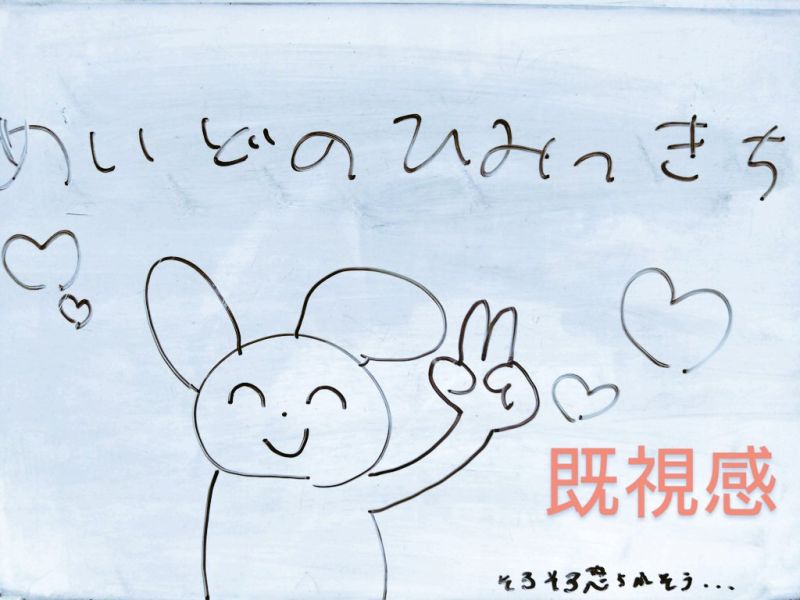 めいどのひみつきち
既視感
そろそろ怒られそう...